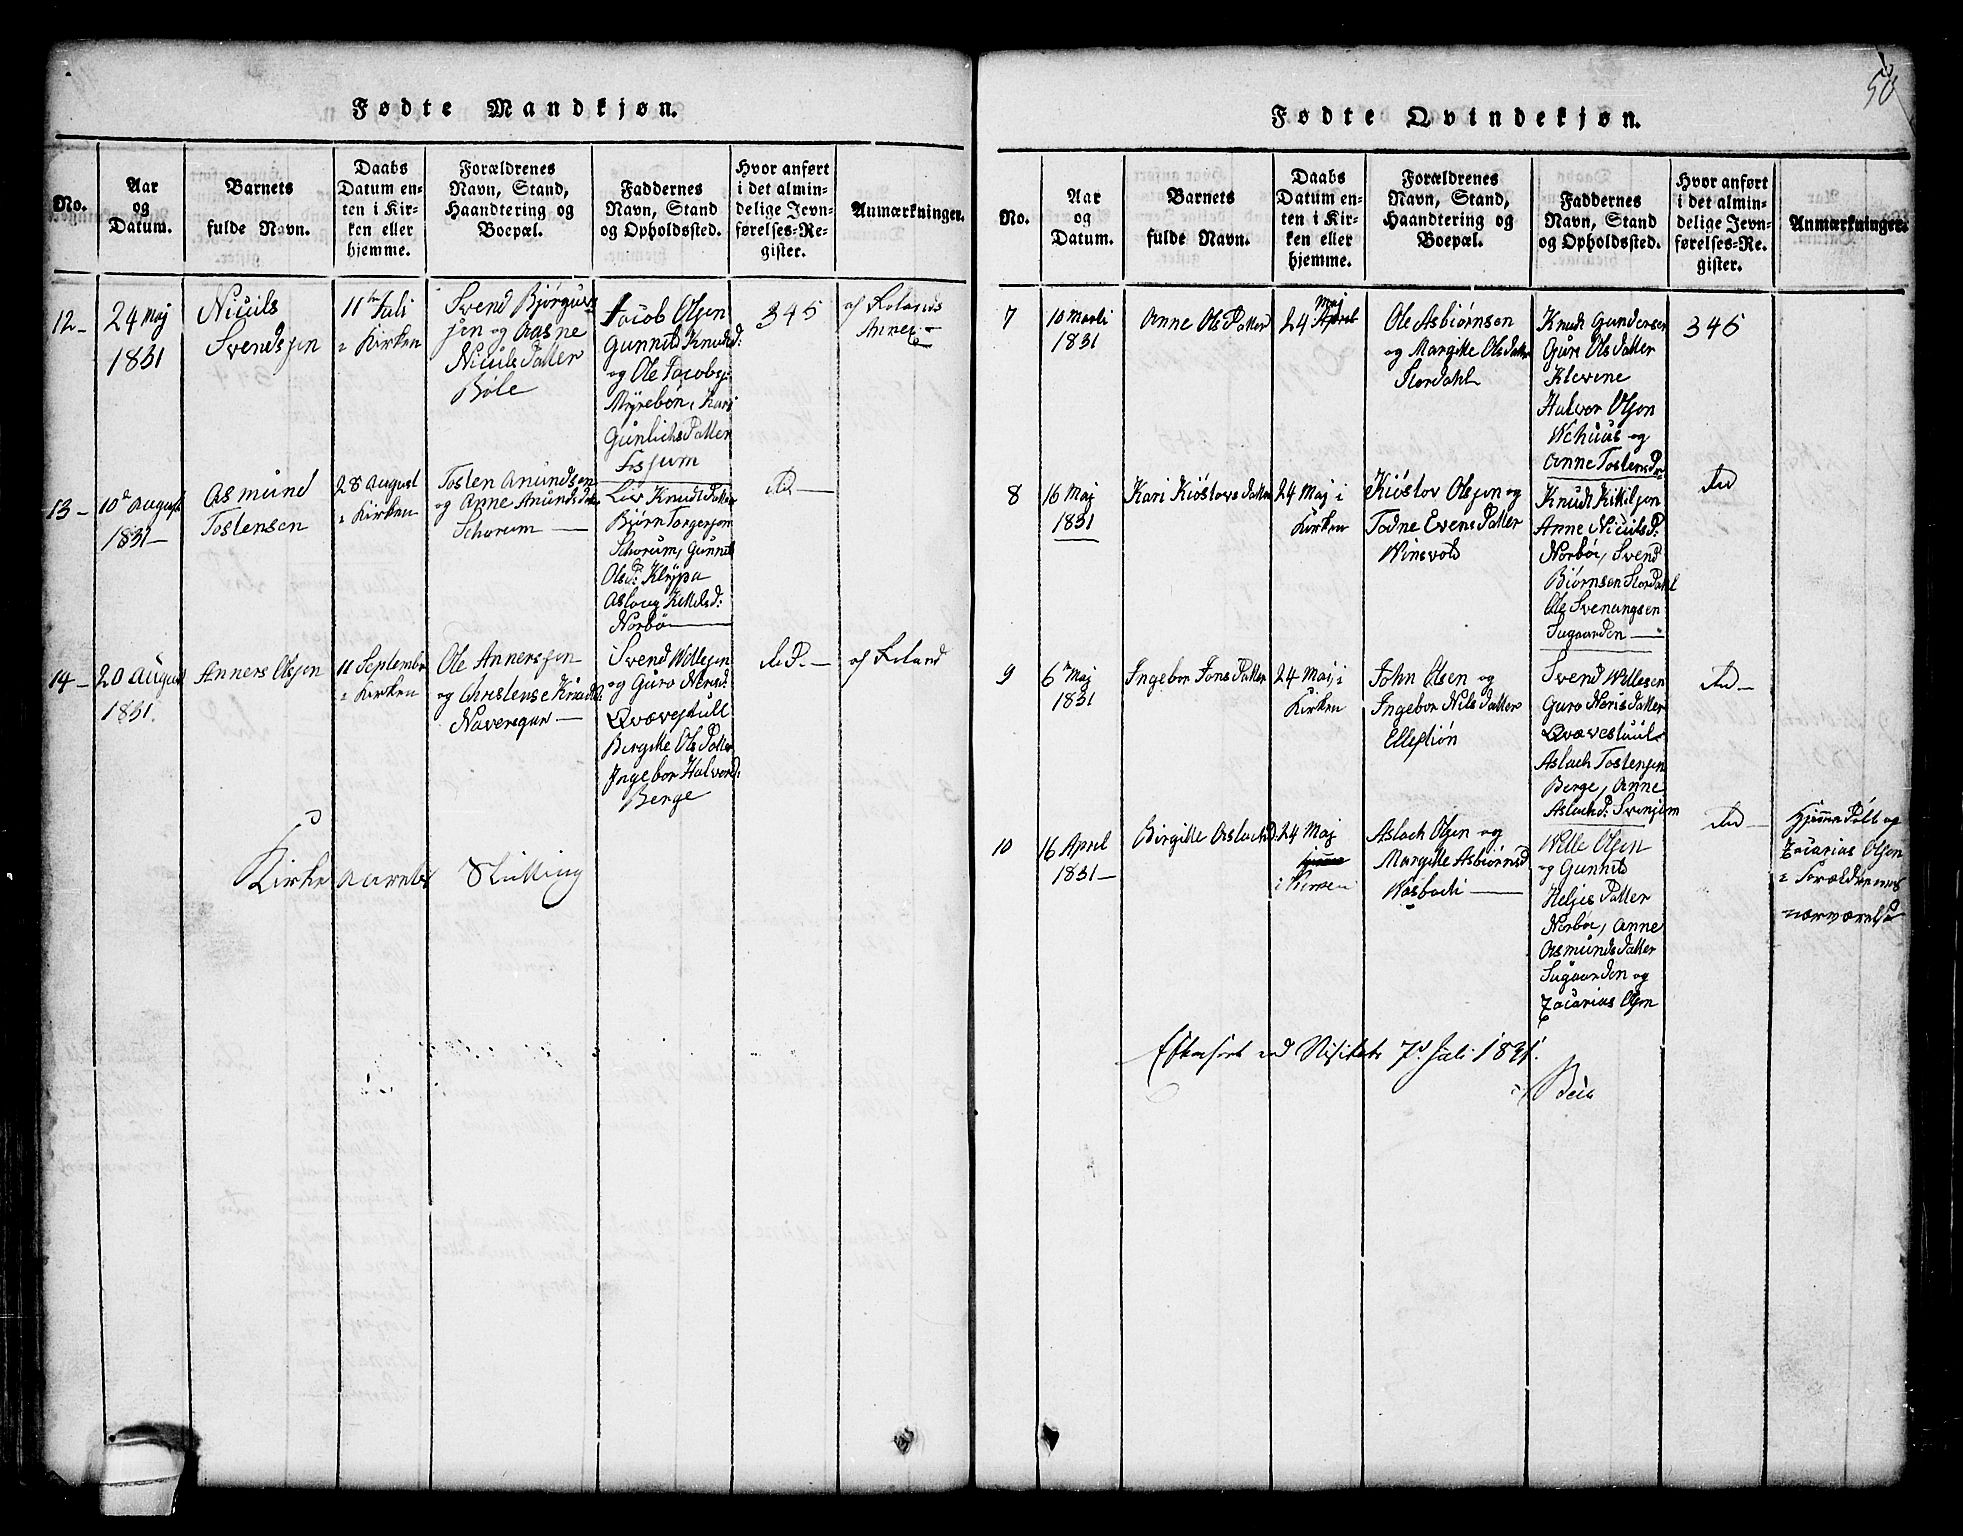 50
Fødte Mandkjøn.
No.
Aar
og
Datum.
Barnets
fulde Navn.
Daabs
Datum en-
ten i Kir-
ken eller
hjemme.
Forældrenes
Navn, Stand,
Haandtering og
Boepæl.
Faddernes
Navn, Stand
og Opholdssted.
Hvor anført
i det almin-
delige Jevn-
førelses-Re-
gister.
Anmærkninger.
12-
24 Maj
1831
Niculs
Svendsen
11te Juli
i Kirken
Svend Bjørgu
sen og Aasne
Niculs Datter
Bøle
Jacob Olsen
Gunnild Knudsd:
og Ole Jacobs:
Myrebøn, Kari
Gunlichs Datter
Fosjum
345
af Holands
Annex
13-
10de August
1831-
Asmund
Tostensen
28 August
i Kirken
Tosten Anundsen
og Anne Anunds
Schorum
Liv Knuds Datter
Bjørn Torgersen
Schorum, Gunnild
Olsd: Klypa
Aslaug Kittelsd:
Norbø
Do
14-
20 August
1831.
Anners Olsen
11 Septembr
i Kirken
Ole Annersen
og Christense Knudsd
Naversgar
Svend Willesen
og Guro Nerisd:
Qvævestull
Bergitte Ols Datter
Ingebor Halvord:
Berge
do-
af Holand
Kirke Aarets Slutting
Fødte Qvindekjøn.
No.
Aar
og
Datum.
Barnets
fulde Navn.
Daabs
Datum en-
ten i Kir-
ken eller
hjemme.
Forældrenes
Navn, Stand,
Haandtering og
Boepæl.
Faddernes
Navn, Stand
og Opholdssted.
Hvor anført
i det almin-
delige Jevn-
førelses-Re-
gister.
Anmærkninger.
7
10 Marti
1831
Anne Ols Datter
24 Maj
April
Ole Asbiørnsen
og Margitte Ols Datter
Stordahl
Knud Gundersen
Guro Ols Datter
Klevene
Halvor Olsen
Wehuus og
Anne Tostensd
345
8
16 Maj
1831
Kari Kiøstovs Datter
24 Maj i
Kirken
Kiøstov Olsen og
Todne Evens Datter
Winsvold
Knud Kittilsen
Anne Niculsd:
Norbøe, Svend
Biørnsen Stordahl
Ole Svenungsen
Sugaarden
Do
9
6te Maj
1831
Ingebor Jons Datter
24 Maj i
Kirken
John Olsen og
Ingebor Nils Datter
Ellestiøn
Svend Willesen
Guro Neris Datter
Qvævestuul
Aslach Tostensen
Berge, Anne
Aslachd: Svensjem
Do-
10
16 April
1831-
Birgitte Aslachd:
24 Maj
hjemme
i Kirken
Aslach Olsen og
Margitte Asbiørnsd
Wasbach
Wille Olsen
og Gunnild
Heljes Datter
Norbøe, Anne
Asmunds Datter
Sugaarden og
Zacarias Olsen
Do-
Hjemme Døbt og
Zacarias Olsen
i Forældrenes
nærværelse
Efterseet ved Visitats 7d Juli 1831.